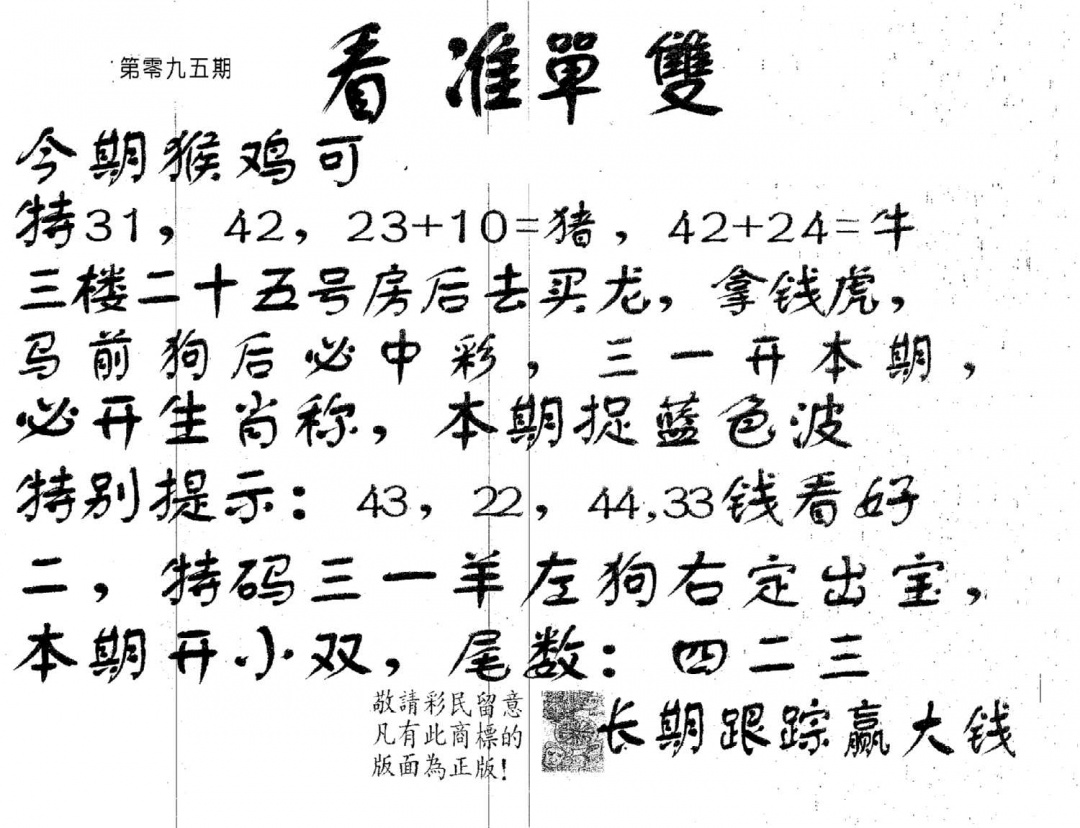 第零九五期
看准單雙
今期猴鸡可
特31，42，23+10=猪，42+24=牛
三楼二十五号房后去买龙，拿钱虎，
马前狗后必中彩，三一开本期，
必开生肖称，本期捉蓝色波
特别提示：43，22，44,33钱看好
二，特码三一羊左狗右定出宝，
本期开小双，尾数：四二三
敬請彩民留意
凡有此商標的
版面為正版！
长期跟踪赢大钱